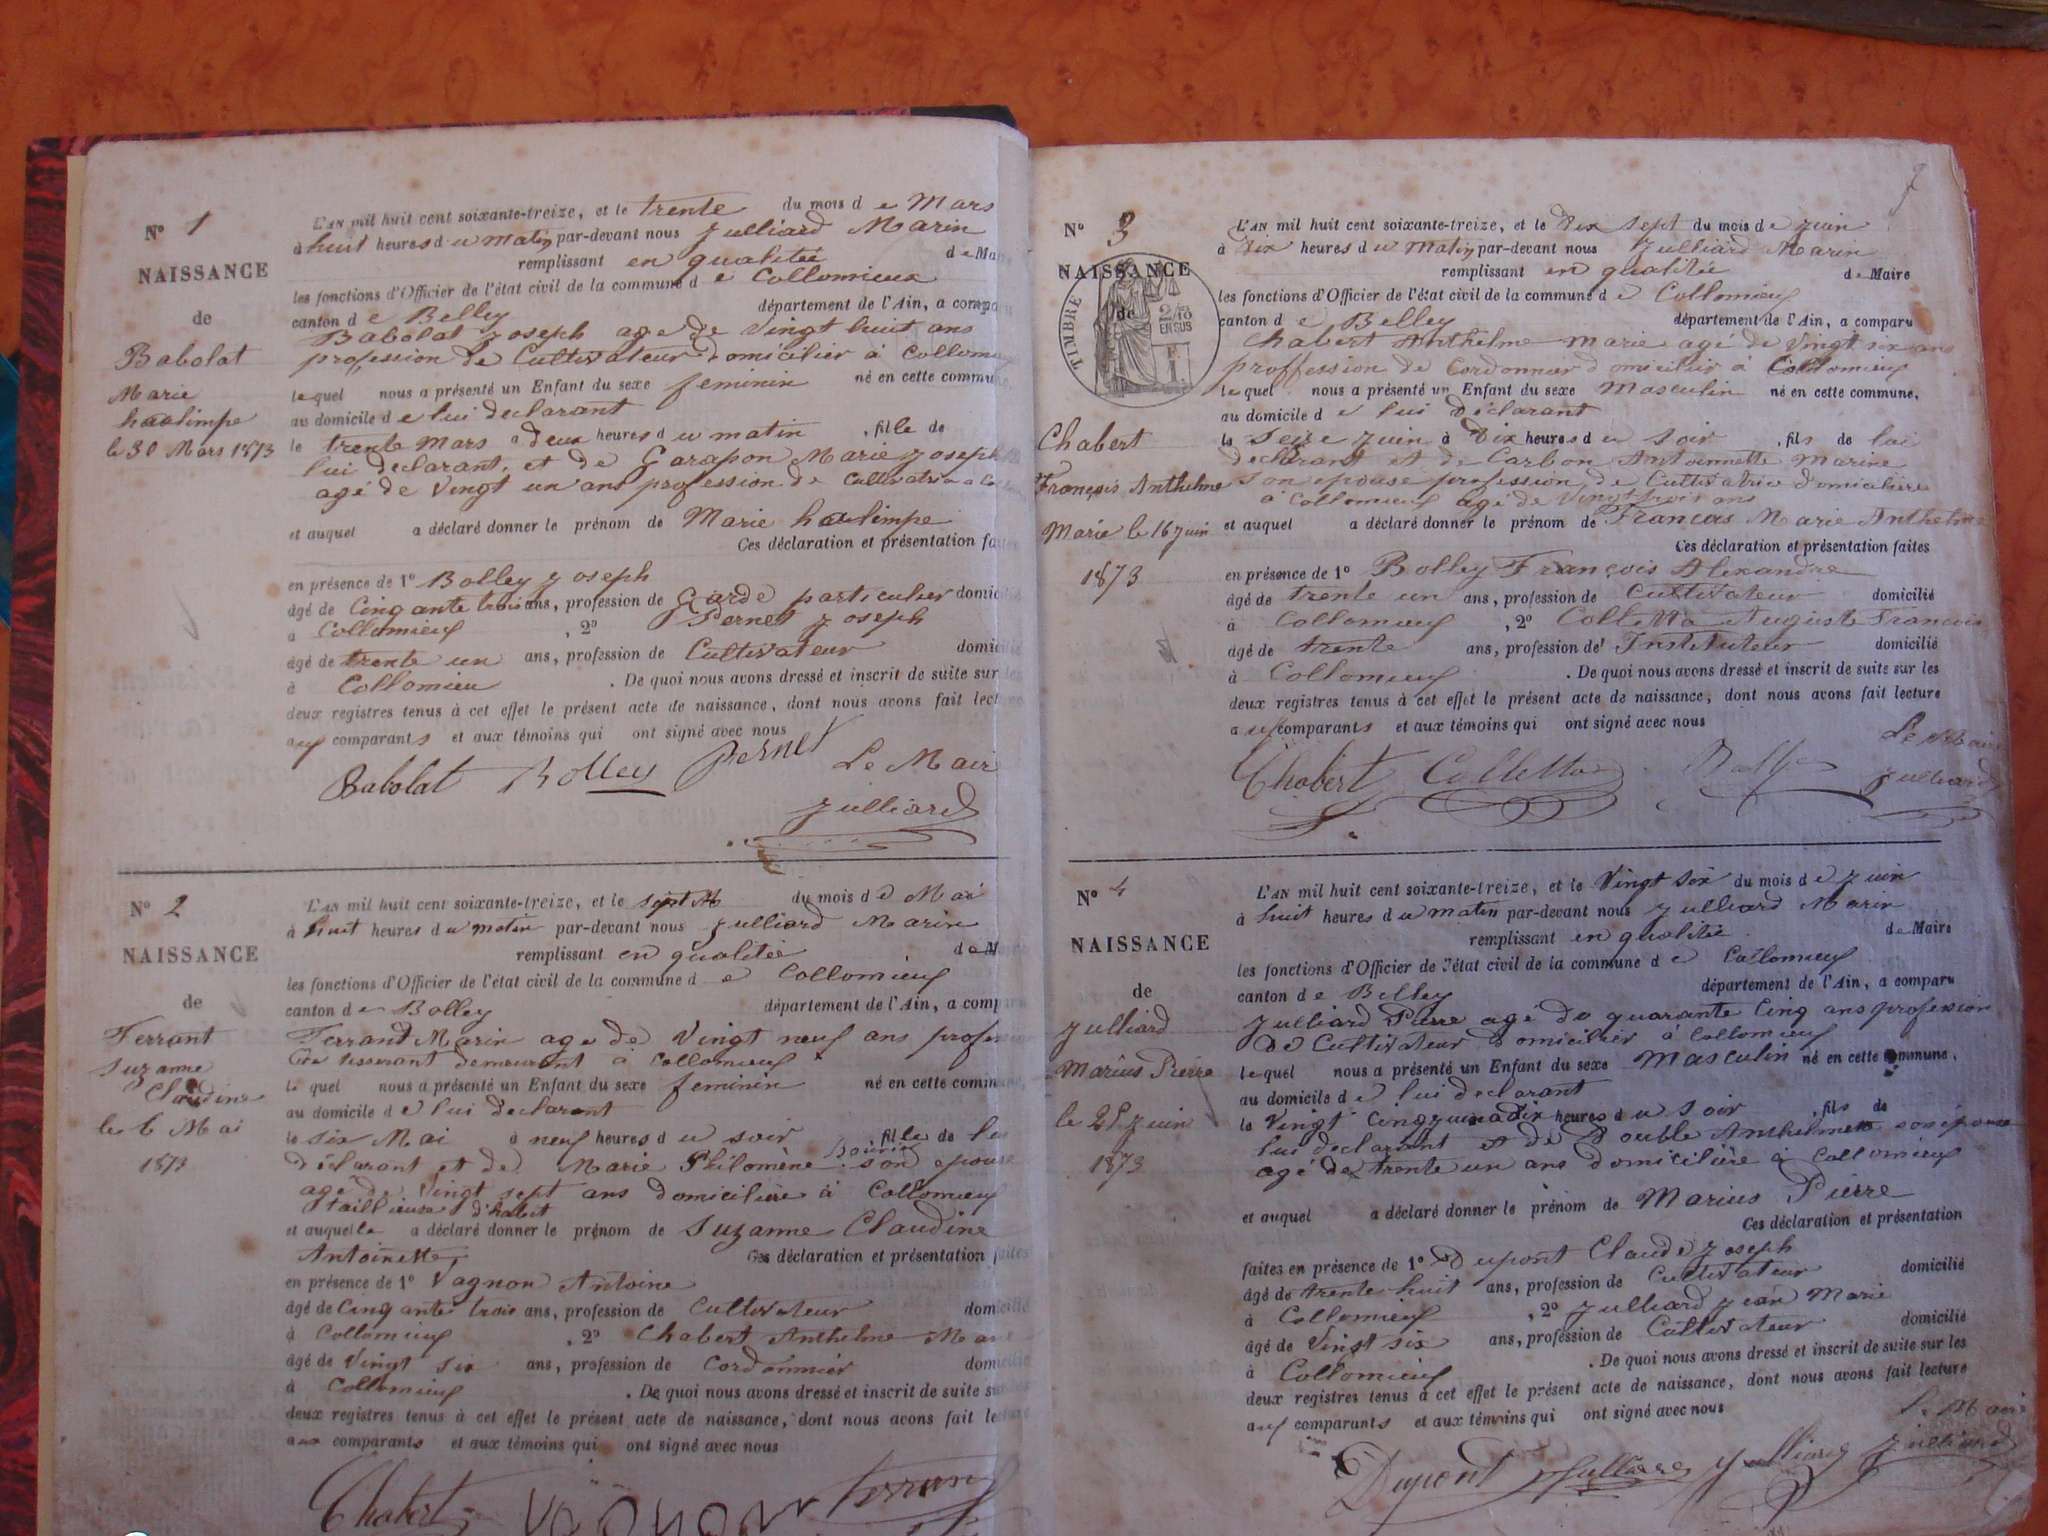 N° 1
NAISSANCE
de
Babolat
Marie
haalimpe
le 30 Mars 1873
L'AN mil huit cent soixante-treize, et le trente du mois de Mars
à huit heures du matin par-devant nous Julliard Marin
remplissant en qualitée de Mai
les fonctions d'Officier de l'état civil de la commune de Collomieux
canton de Belley département de l'Ain, a comparu
Babolat Joseph age de Vingt huit ans
profession de Cultivateur domicilier à Collom
lequel nous a présenté un Enfant du sexe feminin né en cette commune,
au domicile de lui declarant
le trente Mars a deux heures du matin , fille de
lui declarant, et de Garapon Marie Joseph
agé de Vingt un ans profession de Cultivatrice a
et auquel a déclaré donner le prénom de Marie haalimpe
Ces déclaration et présentation faites
en présence de 1° Bolley Joseph
âgé de Cinqante trois ans, profession de Garde particulier domicilié
à Collomieuf , 2° Pernet Joseph
âgé de trente un ans, profession de Cultivateur domicilié
à Collomieu . De quoi nous avons dressé et inscrit de suite sur les
deux registres tenus à cet effet le présent acte de naissance, dont nous avons fait lecture
auf comparants et aux témoins qui ont signé avec nous
Babolat Bolley Pernet Le Mair
Julliard
N° 2
NAISSANCE
de
Ferrant
Suzanne
Claudine
le 6 Mai
1873
L'AN mil huit cent soixante-treize, et le sept du mois de Mai
à huit heures du matin par-devant nous Julliard Marin
remplissant en qualitée de M
les fonctions d'Officier de l'état civil de la commune de Collomieuf
canton de Bolley département de l'Ain, a comparu
Ferrant Marin age de Vingt neuf ans profes
De tisserant demeurant à Collomieuf
lequel nous a présenté un Enfant du sexe feminin né en cette commune,
au domicile de lui declarant
le six Mai à neuf heures du soir , fille de lui
déclarant et de Marie Philomène son epouse
agé de Vingt sept ans domicilière à Collomieuf
taillieuse d'habit
et auquelle a déclaré donner le prénom de Suzanne Claudine
Antoinette Ces déclaration et présentation faites
en présence de 1° Vagnon Antoine
âgé de Cinqante trois ans, profession de Cultivateur domicilié
à Collomieuf , 2° Chabert Anthelme Mar
âgé de Vingt six ans, profession de Cordonnier domicilié
à Collomieuf . De quoi nous avons dressé et inscrit de suite sur
deux registres tenus à cet effet le présent acte de naissance, dont nous avons fait lecture
aux comparants et aux témoins qui ont signé avec nous
Chabert Vagnon Ferrant
N° 3
NAISSANCE
de
TIMBRE
2/10
EN SUS
Chabert
François Anthelme
Marie le 16 Juin
1873
L'AN mil huit cent soixante-treize, et le Dix sept du mois de Juin
à Dix heures du Matin par-devant nous Julliard Marin
remplissant en qualitée de Maire
les fonctions d'Officier de l'état civil de la commune de Collomieuf
canton de Belley département de l'Ain, a comparu
Chabert Anthelme Marie agé de Vingt six ans
proffession de Cordonnier domicilier à Collomieuf
lequel nous a présenté un Enfant du sexe Masculin né en cette commune,
au domicile de lui Déclarant
le Seize Juin à Dix heures du Soir , fils de lui
declarant et de Carbon Antoinnette Marine
Son epouse profession de Cultivatrice domicilière
à Collomieuf agé de Vingt trois ans
et auquel a déclaré donner le prénom de François Marie Anthelme
Ces déclaration et présentation faites
en présence de 1° Bolley François Alexandre
âgé de trente un ans, profession de Cultivateur domicilié
à Collomieuf , 2° Colletta Auguste François
âgé de trente ans, profession de Instituteur domicilié
à Collomieuf . De quoi nous avons dressé et inscrit de suite sur les
deux registres tenus à cet effet le présent acte de naissance, dont nous avons fait lecture
auf comparants et aux témoins qui ont signé avec nous
Le Mair
Chabert Colletta Julliard
N° 4
NAISSANCE
de
Julliard
Marius Pierre
le 25 Juin
1873
L'AN mil huit cent soixante-treize, et le Vingt six du mois de Juin
à huit heures du matin par-devant nous Julliard Marin
remplissant en qualitée de Maire
les fonctions d'Officier de l'état civil de la commune de Collomieuf
canton de Belley département de l'Ain, a comparu
Julliard Pierre agé de quarante Cinq ans profession
De Cultivateur domicilier à Collomieuf
lequel nous a présenté un Enfant du sexe Masculin né en cette commune,
au domicile de lui declarant
le Vingt Cinq Juin a Dix heures du soir , fils de
lui declarant et de Double Anthelmette son épouse
agé de trente un ans domicilière à Collomieuf
et auquel a déclaré donner le prénom de Marius Pierre
Ces déclaration et présentation
faites en présence de 1° Dupont Claude Joseph
âgé de trente huit ans, profession de Cultivateur domicilié
à Collomieuf , 2° Julliard Jean Marie
âgé de Vingt six ans, profession de Cultivateur domicilié
à Collomieuf . De quoi nous avons dressé et inscrit de suite sur les
deux registres tenus à cet effet le présent acte de naissance, dont nous avons fait lecture
auf comparants et aux témoins qui ont signé avec nous
Le Maire
Dupont Julliard Julliard Julliard